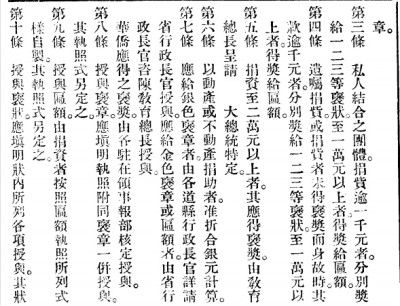 章。
第三條　私人結合之團體捐貲逾一千元者分別獎
給一二三等褒狀至一萬元以上者得獎給匾額。
第四條　遺囑捐貲或捐貲者未得褒獎而身故時其
款逾千元者分別獎給一二三等褒狀至一萬元以
上者得獎給匾額。
第五條　捐資至二萬元以上者其應得褒獎由教育
總長呈請　大總統特定。
第六條　以動產或不動產捐助者准折合銀元計算。
第七條　應給銀色褒章者由各道縣行政長官詳請
省行政長官授與應給金色褒章或匾額者由省行
政長官咨陳教育總長授與。
華僑應得之褒獎由各駐在領事報部核定授與。
第八條　授與褒章應填明執照附同褒章一併授與
其執照式另定之。
第九條　授與匾額由捐資者按照匾額執照所列式
樣自製其執照式另定之。
第十條　授與褒狀應填明狀內所列各項授與其狀